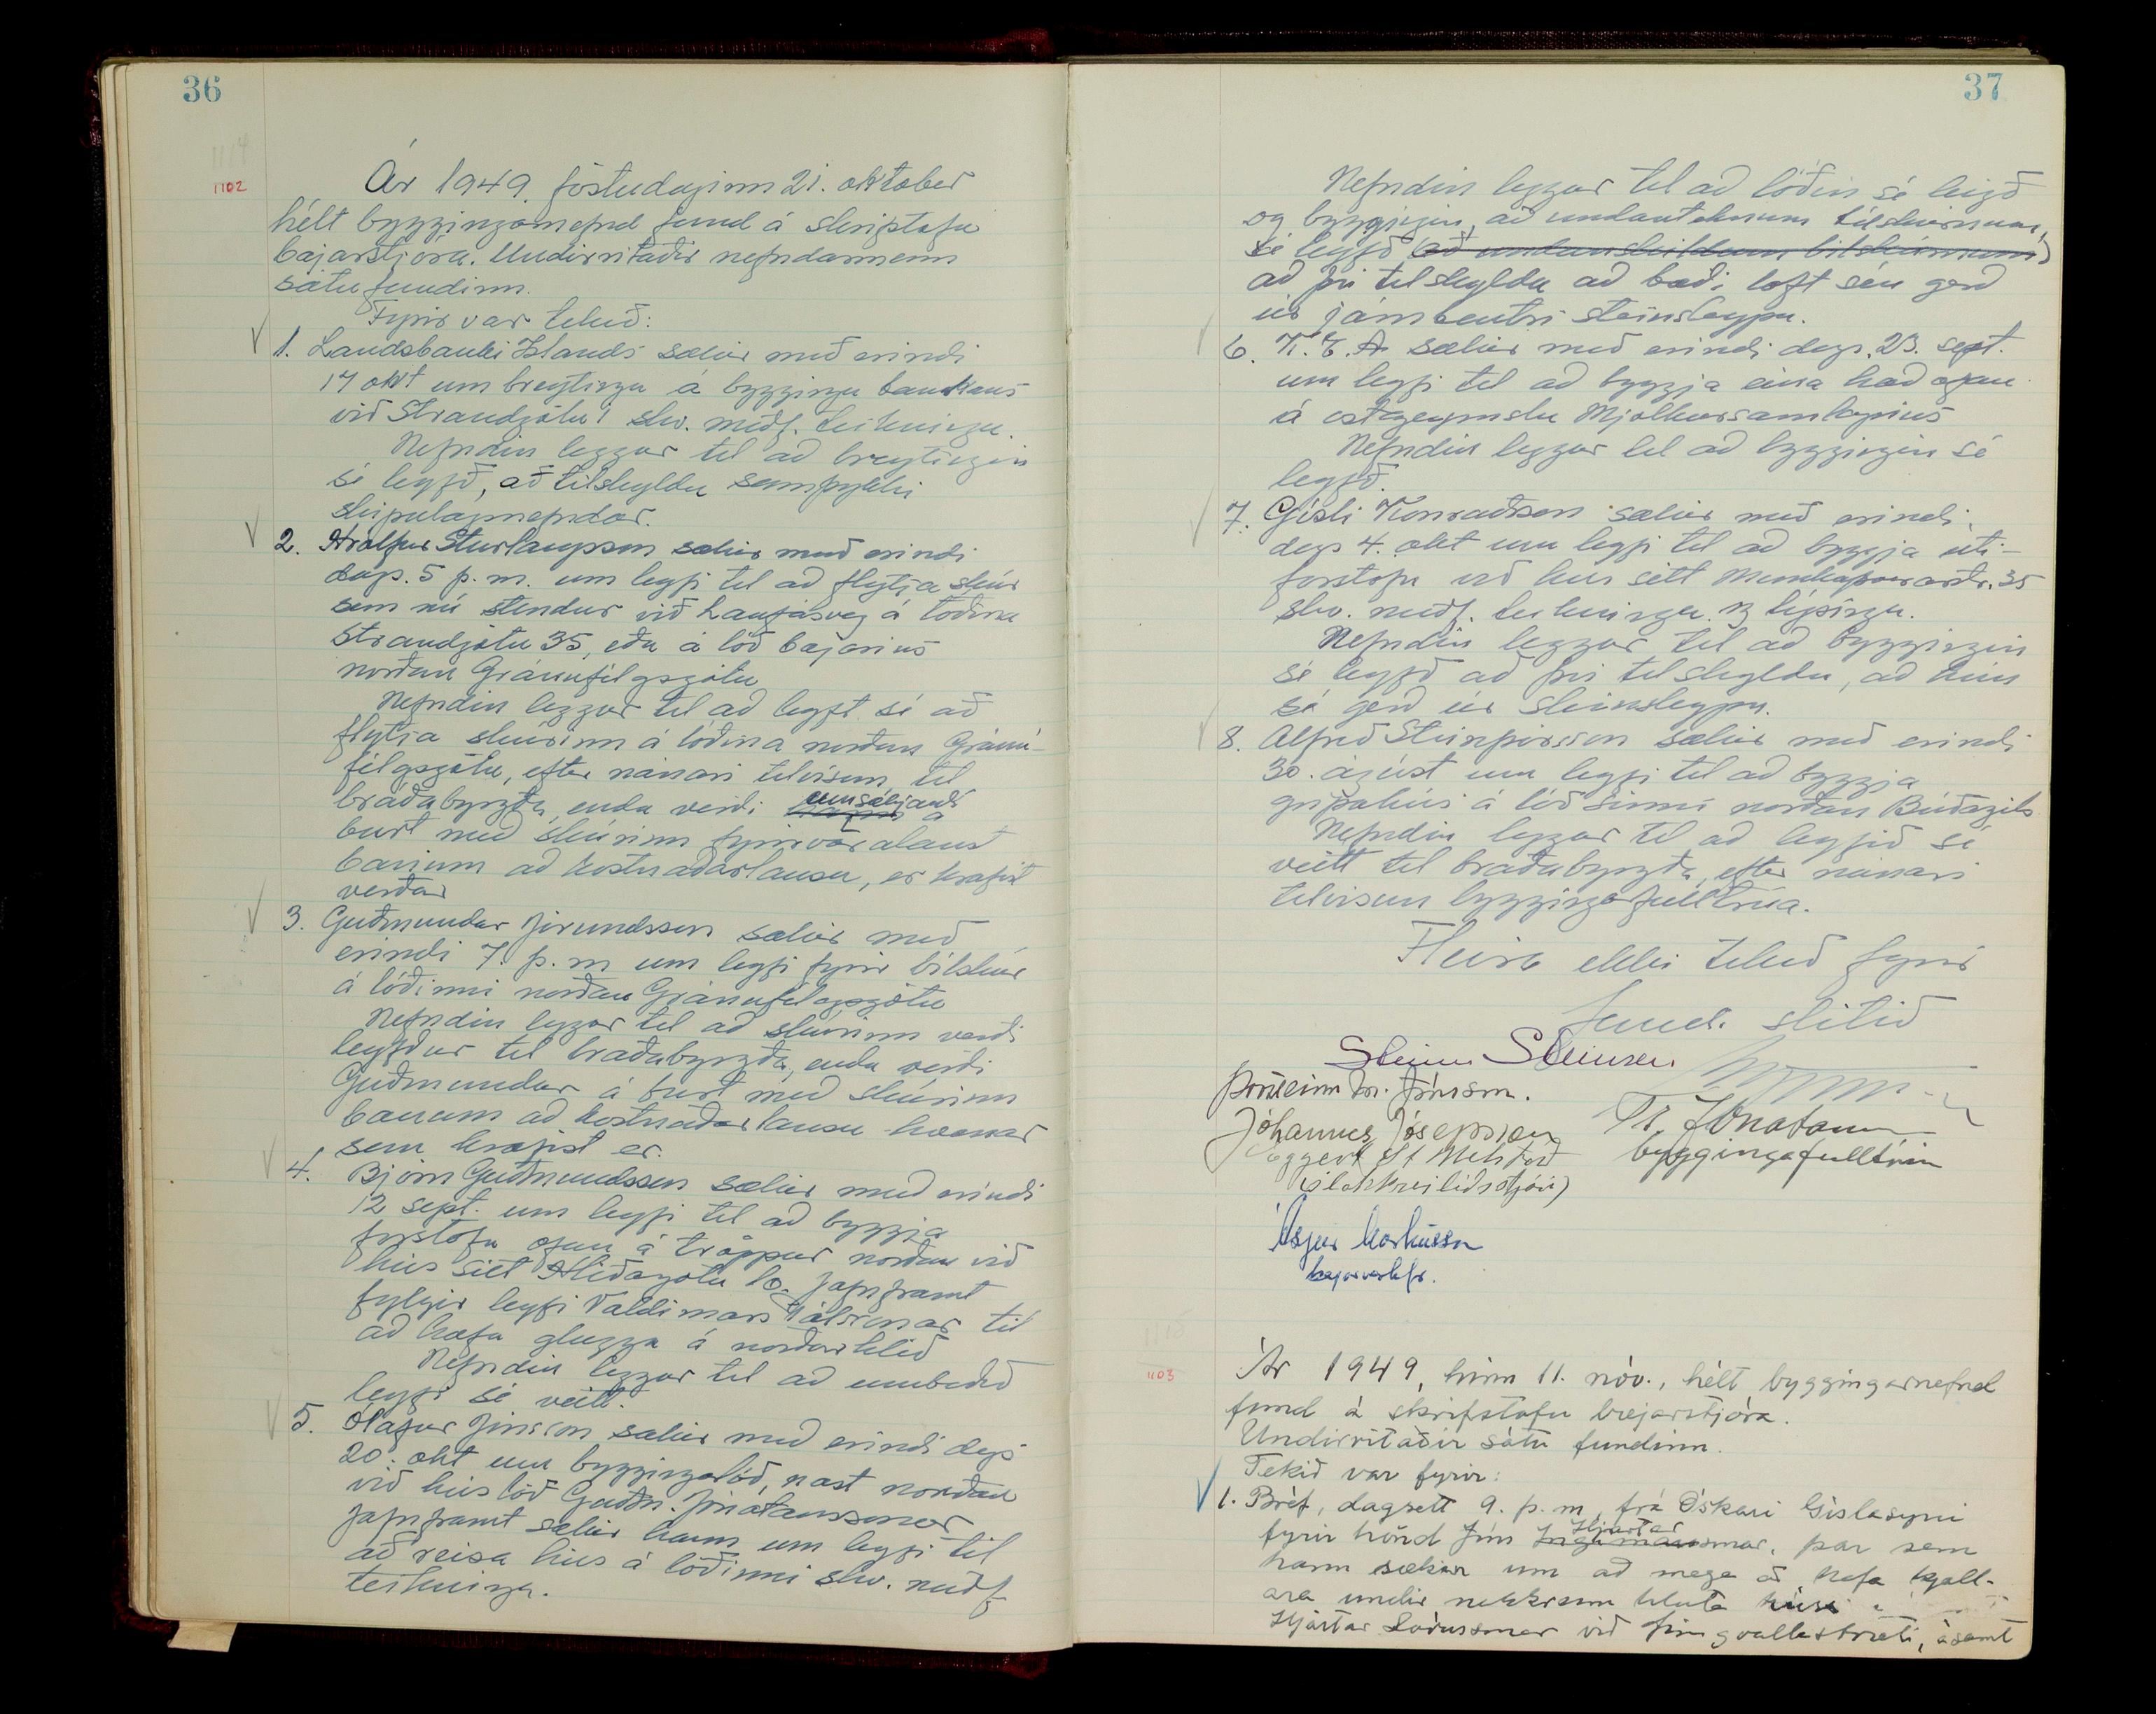 36
1102
Ár 1949, föstudaginn 21. október
hélt bygginganefnd fund á skrifstofu
bæjarstjóra. Undirritaðir nefndarmenn
sátu fundinn.
Fyrir var tekið:
1. Landsbanki Íslands sækir með erindi
17 okt um breytingu á byggingu bankans
við Strandgötu 1 skv. meðf. teikningu.
Nefndin leggur til að breytingin
sé leyfð, að tilskyldu samþykki
skipulagsnefndar.
2. Hrólfur Sturlaugsson sækir með erindi
dags. 5 þ.m. um leyfi til að flytja skúr
sem nú stendur við Laufásveg á lóðina
Strandgötu 35, eða á lóð bæjarins
norðan Gránufélagsgötu
Nefndin leggur til að leyft sé að
flytja skúrinn á lóðina norðan Gránu-
félagsgötu, eftir nánari tilvísun, til
bráðabyrgða, enda verði umsækjandi á
burt með skúrinn fyrirvaralaust
bænum að kostnaðarlausu, er krafist
verður
3. Guðmundur Jörundsson sækir með
erindi 7. þ.m um leyfi fyrir bílskúr
á lóðinni norðan Gránufélagsgötu
Nefndin leggur til að skúrinn verði
leyfður til bráðabyrgða, enda verði
Guðmundur á burt með skúrinn
bænum að kostnaðarlausu hvenær
sem krafist er.
4. Björn Guðmundsson sækir með erindi
12 sept. um leyfi til að byggja
forstofu ofan á tröppur norðan við
hús sitt Hlíðargötu 10. Jafnframt
fylgir leyfi Valdimars Pálssonar til
að hafa glugga á norðurhlið
Nefndin leggur til að umbeðið
leyfi sé veitt.
5. Ólafur Jónsson sækir með erindi dags
20. okt um byggingarlóð, næst norðan
við hús lóð Guðm. Jónatanssonar
Jafnframt sækir hann um leyfi til
að reisa hús á lóðinni skv. meðf
teikningu.
37
Nefndin leggur til að lóðin sé leigð
og byggingin, að undanteknum bílskúrnum,
sé leyfð (að undanskildum bílskúrnum)
að því tilskyldu að bæði loft séu gerð
úr járnbentri steinsteypu.
6. K.E.A. sækir með erindi dags. 23. sept.
um leyfi til að byggja eina hæð ofan
á ostageymslu Mjólkursamlagsins
Nefndin leggur til að byggingin sé
leyfð.
7. Gísli Konráðsson sækir með erindi
dags 4. okt um leyfi til að byggja úti-
forstofu við hús sitt Munkaþverárstr. 35
skv. meðf. teikningu og lýsingu.
Nefndin leggur til að byggingin
sé leyfð að því tilskyldu, að hún
sé gerð úr steinsteypu.
8. Alfreð Steinþórsson sækir með erindi
30. ágúst um leyfi til að byggja
gripahús á lóð sinni norðan Búðargils
Nefndin leggur til að leyfið sé
veitt til bráðabyrgða, eftir nánari
tilvísun byggingafulltrúa.
Fleira ekki tekið fyrir
Fundi slitið
Steinn Steinsen
Þorsteinn Jónsson.
Jóhannes Jósepsson Tr. Jónatansson
Eggert St Melstað byggingafulltrúi
(slökkviliðsstjóri)
Ásgeir Markússon
bæjarverkfr.
1103
Ár 1949, hinn 11. nóv., hélt byggingarnefnd
fund á skrifstofu bæjarstjóra.
Undirritaðir sátu fundinn.
Tekið var fyrir:
1. Bréf, dagsett 9. þ.m, frá Óskari Gíslasyni
fyrir hönd Jóns Ingimarssonar, þar sem
Hjartar
hann sækir um að mega að hafa kjall-
ara undir nokkrum hluta húss
Hjartar Lárussonar við Þingvallastræti, ásamt